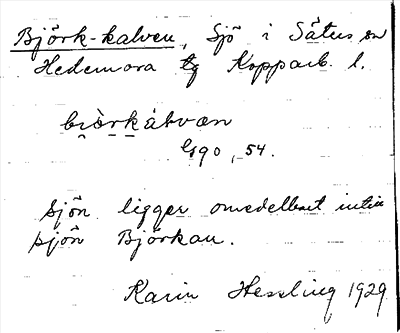 Björk-kalven, Sjö i Säters sn
Hedemora tg Kopparb. l.
Ggo, 54.
Sjön ligger omedelbart intill
sjön Björkan.
Karin Hessling 1929